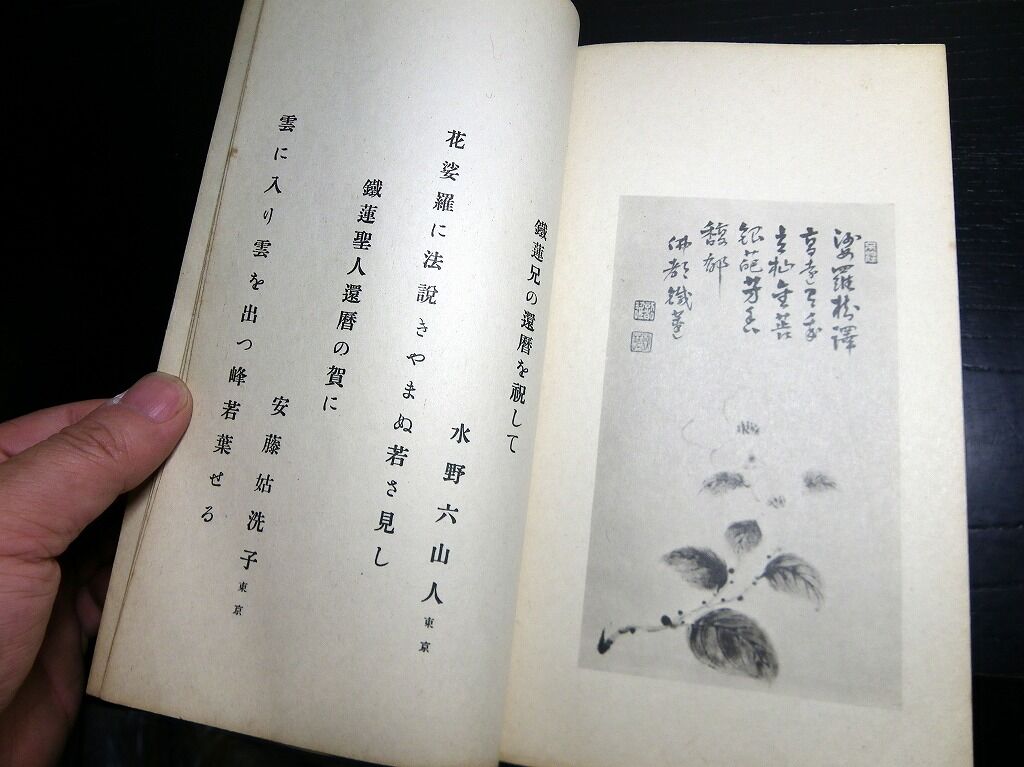 娑羅樹譯
高遠
銀葩芳
馥郁
佛都鐵蓮
鐵蓮兄の還曆を祝して
水野六山人 東京
花娑羅に法說きやまぬ若さ見し
鐵蓮聖人還曆の賀に
安藤姑洗子 東京
雲に入り雲を出つ峰若葉せる